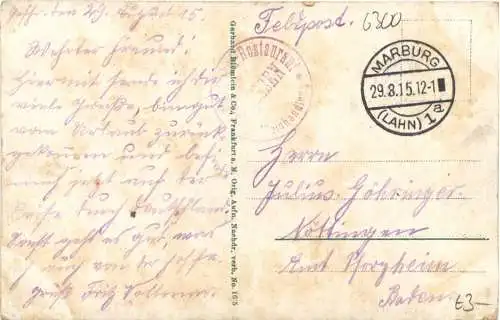 den 29. August 15.
Werter Freund!
Hiermit sende ich die
viele Grüße, bin gut
vom Urlaub zurück
gekommen und befi
mich jetzt auf der
Reise durch Deutschland.
Sonst geht es gut, was
ich auch von dir hoffe.
Gruß Fritz
Gerhard Blümlein & Co., Frankfurt a. M. Orig. Aufn. Nachdr. verb. No. 165
Feldpost.
6300
Restaurant
MARBURG
29.8.15.12-1
(LAHN) 1a
Herrn
Julius Gohringer
Nöttingen
Amt Pforzheim
Baden
£3-